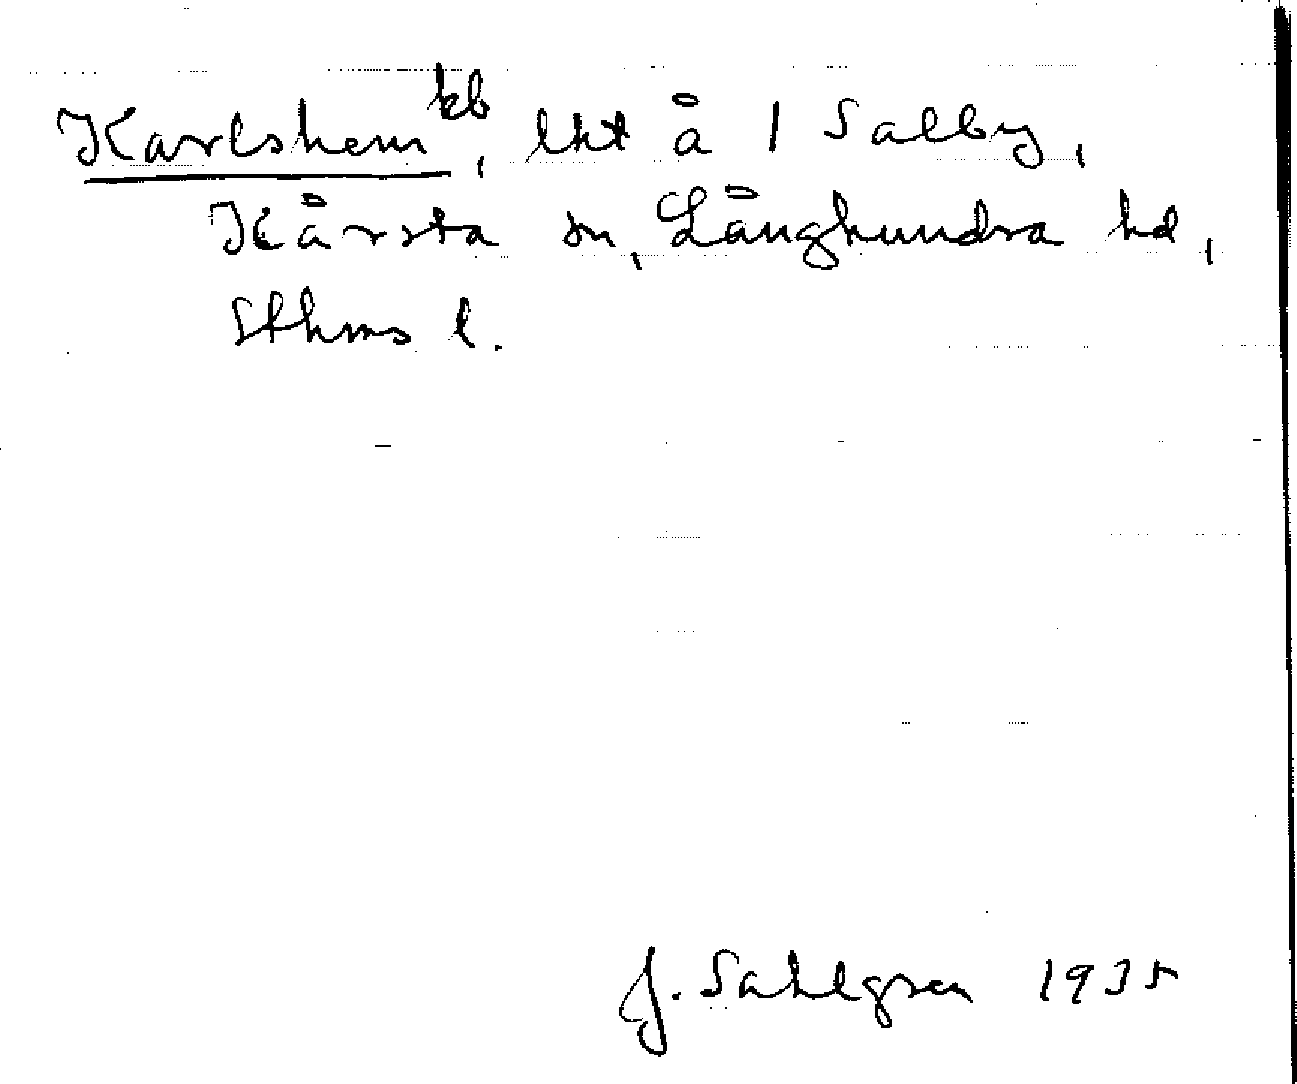 Karlshem kb, lht å 1 Salby,
Kårsta sn, Långhundra hd,
Sthms l.
J. Sahlgren 1935